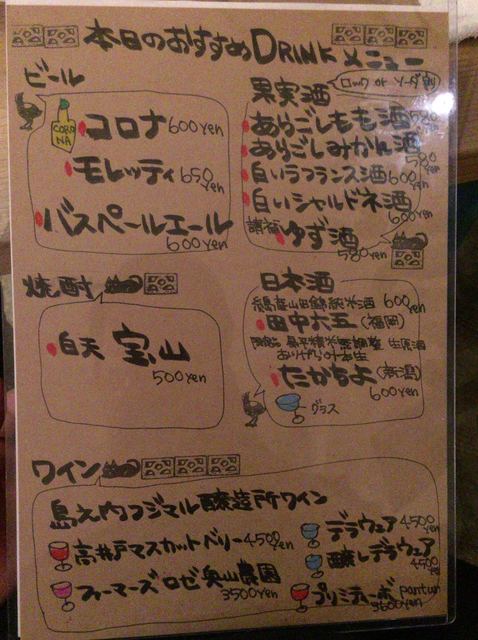 本日のおすすめDRINKメニュー
ビール
CORONA
コロナ 600yen
モレッティ 650yen
バスペールエール
600yen
果実酒
ロック or ソーダ割
あらごしもも酒 580yen
あらごしみかん酒
580yen
白いラフランス酒 600yen
白いシャルドネ酒
600yen
ゆず酒
580yen
焼酎
白天 宝山
500yen
日本酒
糸島産山田錦純米酒 600yen
田中六五(福岡)
扁平精米 無調整 生原酒
おりがらみ本生
たかちよ(新潟)
600yen
グラス
ワイン
島之内フジマル醸造所ワイン
高井戸マスカットベリー 4500yen
ファーマーズ ロゼ 奥山農園
3500yen
デラウェア 4500yen
醸しデラウェア
4500yen
プリミティーボ pantun
3600yen